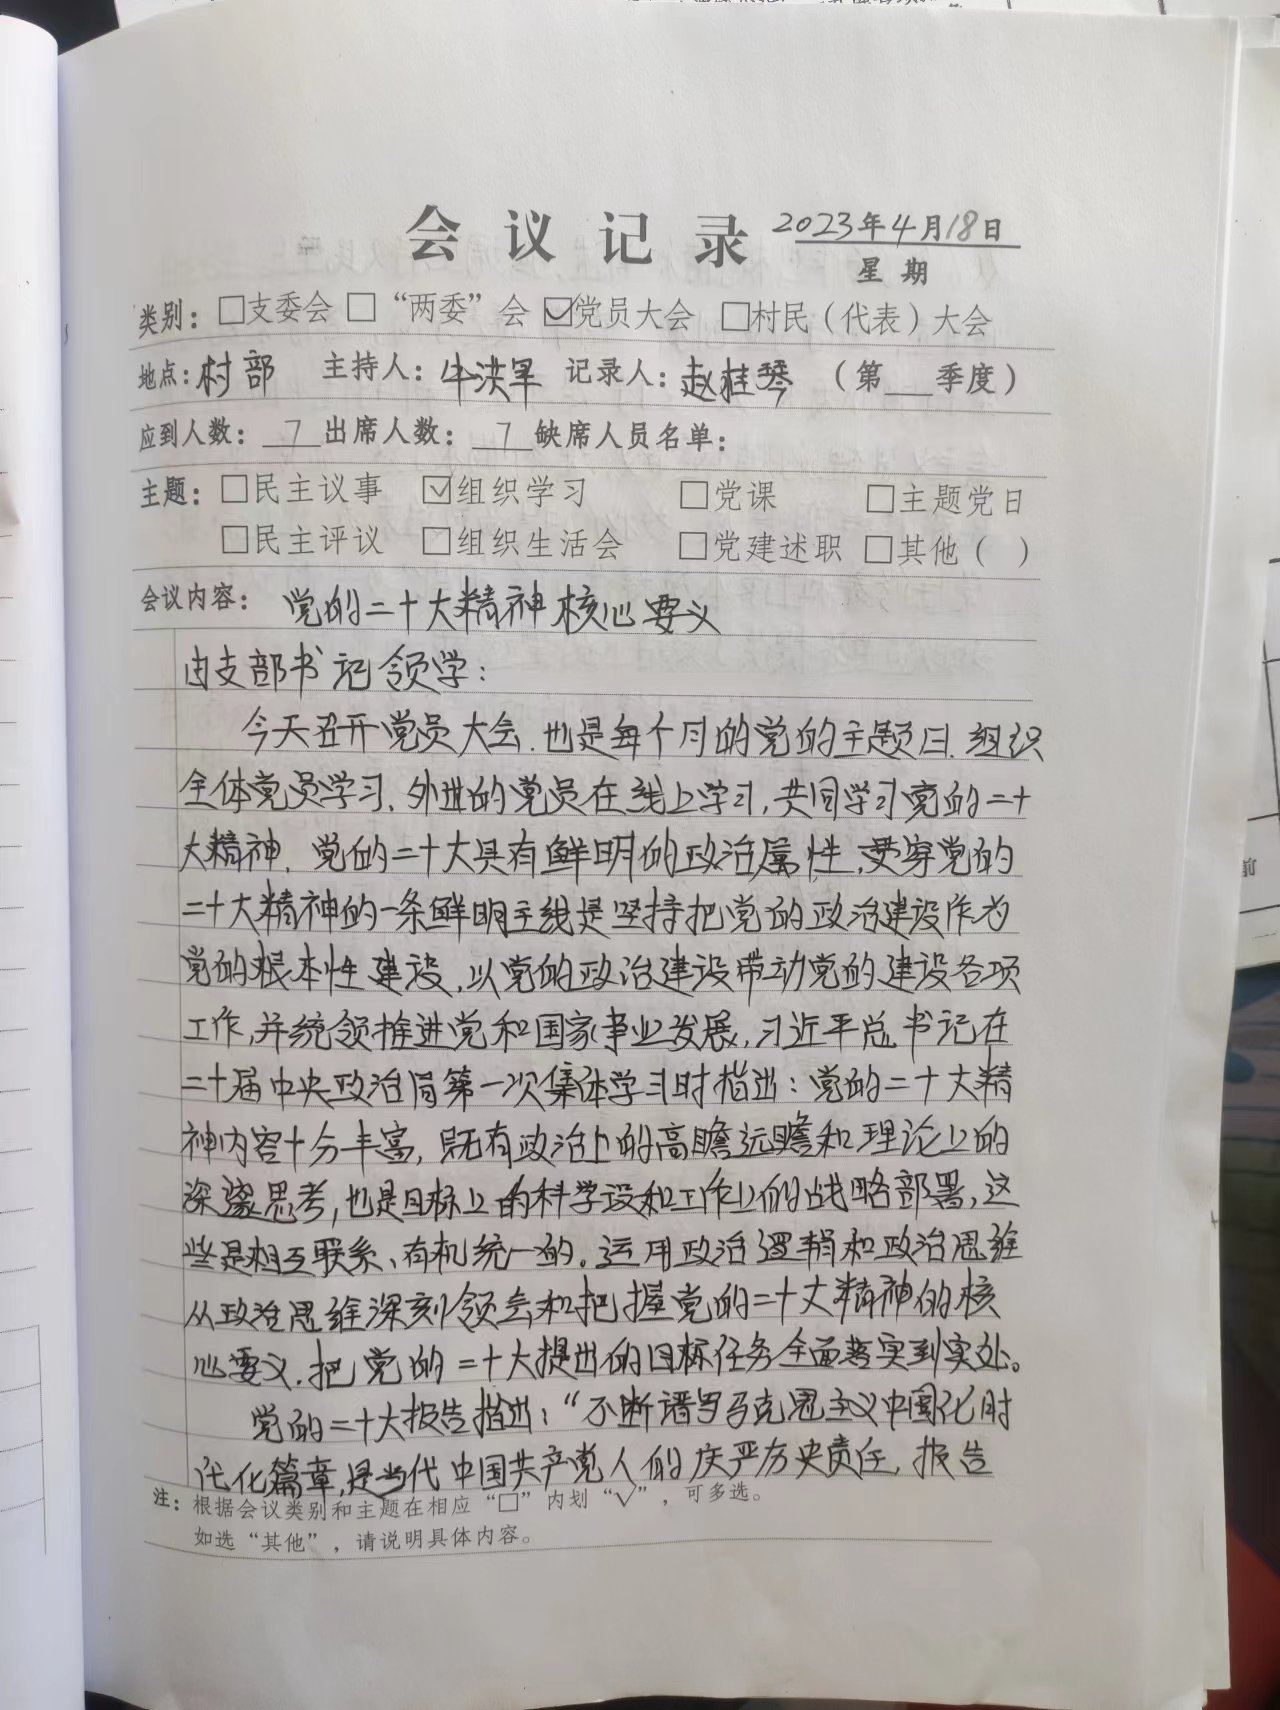 会议记录 2023年4月18日
星期
类别：□支委会 □“两委”会 ☑党员大会 □村民（代表）大会
地点：村部 主持人：牛洪军 记录人：赵桂琴 （第 季度）
应到人数：7 出席人数：7 缺席人员名单：
主题：□民主议事 ☑组织学习 □党课 □主题党日
□民主评议 □组织生活会 □党建述职 □其他（ ）
会议内容：党的二十大精神核心要义
由支部书记领学：
今天召开党员大会，也是每个月的党的主题日，组织
全体党员学习，外出的党员在线上学习，共同学习党的二十
大精神，党的二十大具有鲜明的政治属性，贯穿党的
二十大精神的一条鲜明主线是坚持把党的政治建设作为
党的根本性建设，以党的政治建设带动党的建设各项
工作，并统领推进党和国家事业发展，习近平总书记在
二十届中央政治局第一次集体学习时指出：党的二十大精
神内容十分丰富，既有政治上的高瞻远瞻和理论上的
深邃思考，也是目标上的科学设和工作上的战略部署，这
些是相互联系、有机统一的。运用政治逻辑和政治思维
从政治思维深刻领会和把握党的二十大精神的核
心要义，把党的二十大提出的目标任务全面落实到实处。
党的二十大报告指出：“不断谱写马克思主义中国化时
代化篇章，是当代中国共产党人的庄严历史责任，报告
注：根据会议类别和主题在相应“□”内划“√”，可多选。
如选“其他”，请说明具体内容。